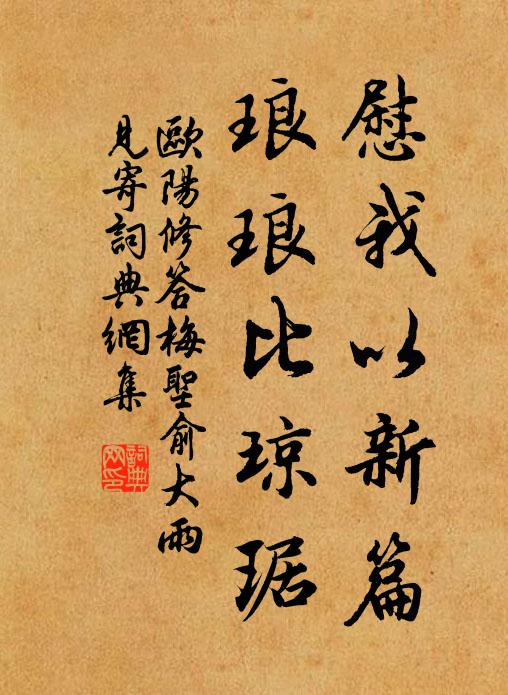 慰我以新篇
琅琅比琼琚
歐陽修答梅聖俞大雨
見寄詞典網集
詞典
网印